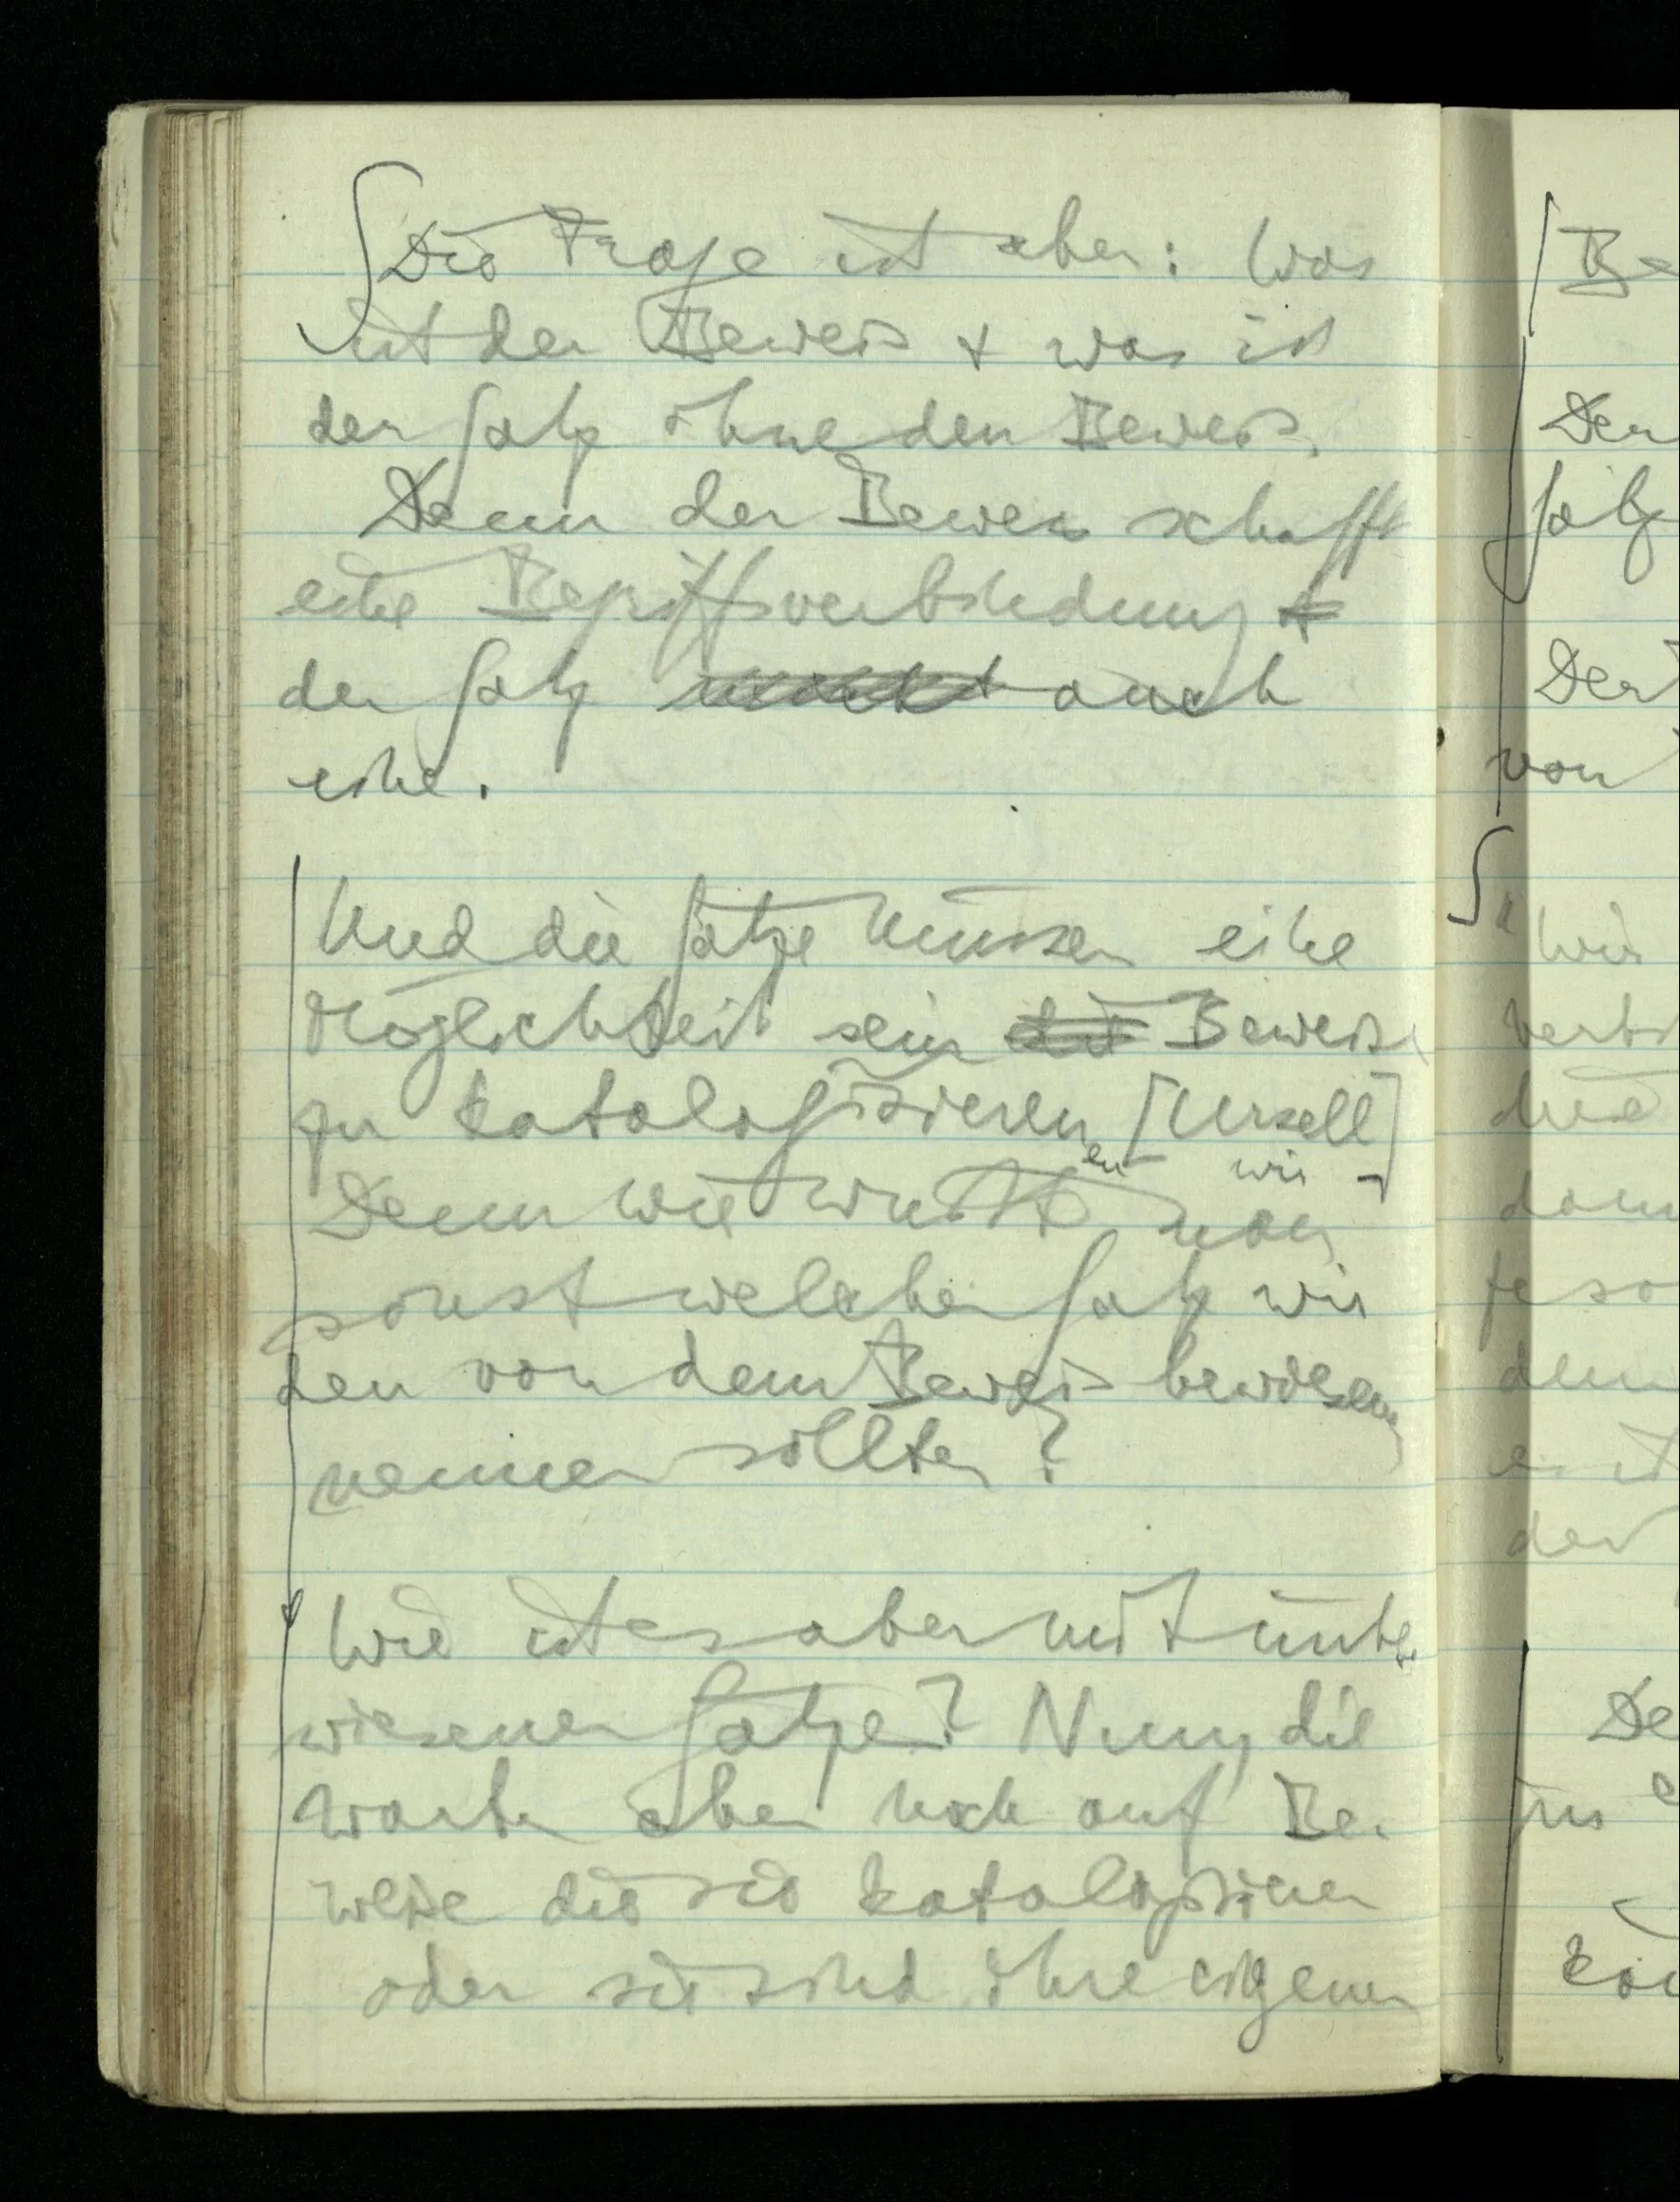 ∫ Die Frage ist aber: Was
ist der Beweis + was ist
der Satz ohne den Beweis.
Denn der Beweis schafft
eine Begriffsverbindung +
der Satz macht auch
eine.
Und die Sätze müssen eine
Möglichkeit sein die Beweise
zu katalogisieren [Ursell]
en wir
Denn wie wüßte man
sonst welchen Satz wir
den von dem Beweis bewiesenen
nennen sollten?
Wie ist es aber mit unbe
wiesenen Sätzen? Nun, die
warten eben noch auf Be-
weise die sie katalogisieren
oder sie sind ihre eigenen
Be
Der
Satz
Der
von
∫ "Wir